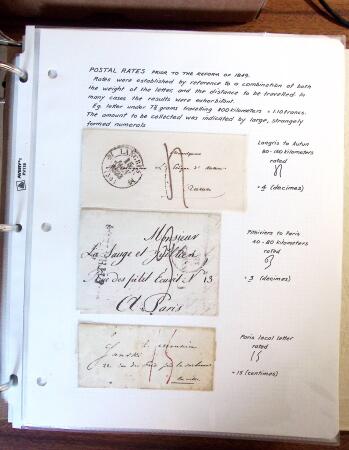 POSTAL RATES PRIOR TO THE REFORM OF 1849.
Rates were established by reference to a combination of both
the weight of the letter, and the distance to be travelled. In
many cases the results were exhorbitant.
Eg. letter under 7½ grams travelling 800 kilometers = 1.10 francs.
The amount to be collected was indicated by large, strangely
formed numerals
Langris to Autun
80-150 kilometers
rated
= 4 (decimes)
Monsieur
La Sauge et
Rue des petit Ecurit N° 13
A Paris
Pithiviers to Paris
40-80 kilometers
rated
= 3 (decimes)
Paris local letter
rated
15
= 15 (centimes)